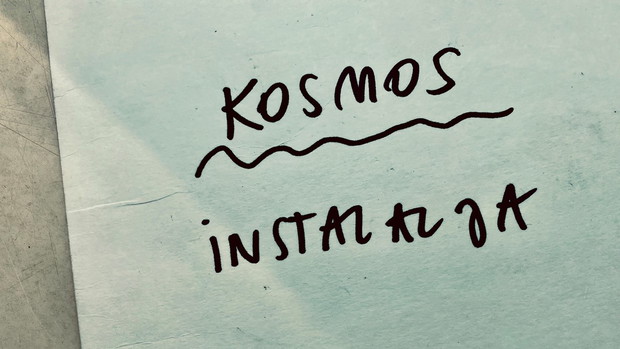 KOSMOS
iNSTALACJA